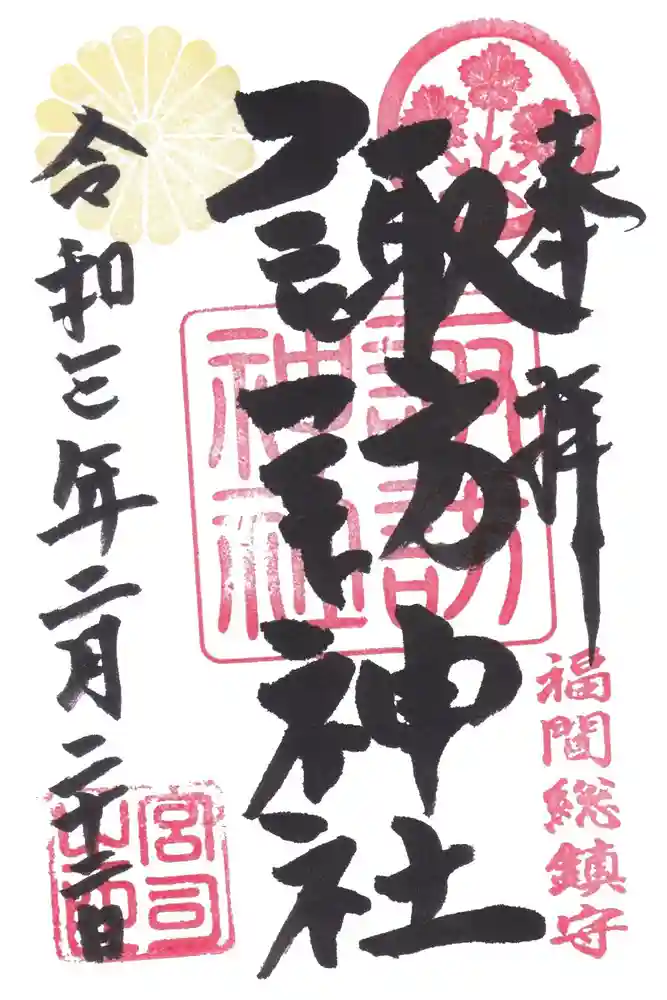 奉拝
福間総鎮守
諏訪神社
諏訪
神社
令和三年二月二十二日
宮司
之印